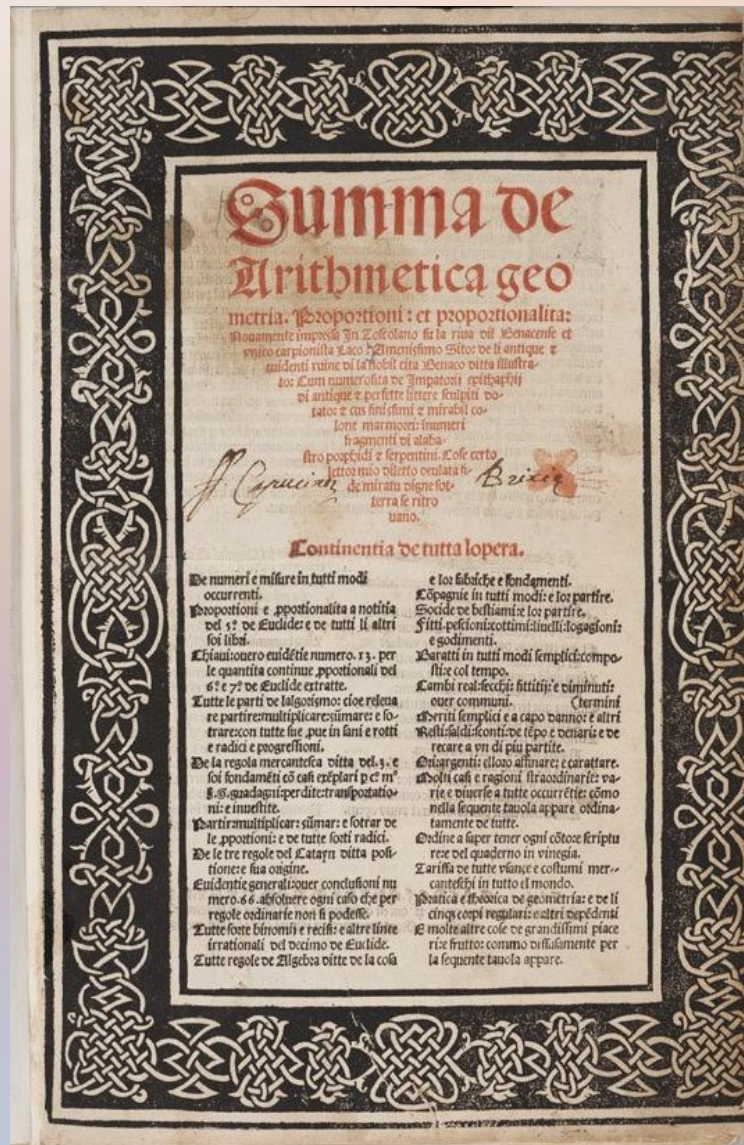 Summa de
Arithmetica geo
metria. Proportioni: et proportionalita:
Nouamente impressa In Toscolano su la riua dil Benacense et
vnico carpionista Laco: Amenissimo Sito: de li antique ⁊
euidenti ruine di la nobil cita Benaco ditta illustra-
to: Cum numerosita de Impatorij epithaphij
di antique ⁊ perfette littere sculpiti do-
tato: ⁊ cus finissimi ⁊ mirabil co-
lone marmorei: inumeri
fragmenti di alaba-
stro porphidi ⁊ serpentini. Cose certo
lettor mio diletto oculata fi-
de miratu digne sot-
terra se ritro
uano.
Brixię
Continentia de tutta lopera.
De numeri e misure in tutti modi
occurrenti.
Proportioni e ꝓportionalita a notitia
del 5º de Euclide: e de tutti li altri
soi libri.
Chiaui: ouero euidētie numero. 13. per
le quantita continue ꝓportionali del
6º e 7º de Euclide extratte.
Tutte le parti de lalgorismo: cioe releua
re partire: multiplicare: sūmare: e so-
trare: con tutte sue ꝓue in sani e rotti
e radici e progressioni.
De la regola mercantesca ditta del .3. e
soi fondamēti cō casi exēplari ꝑ cº mº
guadagni: perdite: transportatio-
ni: e inuestite.
Partir: multiplicar: sūmar: e sotrar de
le ꝓportioni: e de tutte sorti radici.
De le tre regole del Catayn ditta posi-
tione: e sua origine.
Euidentie generali: ouer conclusioni nu
mero. 66. absoluere ogni caso che per
regole ordinarie non si podesse.
Tutte sorte binomij e recisi: e altre linee
irrationali del decimo de Euclide.
Tutte regole de Algebra ditte de la cosa
e lor fabriche e fondamenti.
Cōpagnie in tutti modi: e lor partire.
Socide de bestiami: e lor partire.
Fitti: pescioni: cottimi: liuelli: logagioni:
e godimenti.
Baratti in tutti modi semplici: compo-
sti: e col tempo.
Cambi reali: secchi: fittitij: e diminuti:
ouer communi. (termini
Meriti semplici e a capo danno: e altri
Resti: saldi: sconti: de tēpo e denari: e de
recare a vn di piu partite.
Ori: argenti: e lloro affinare: e carattare.
Molti casi e ragioni straordinarie: va-
rie e diuerse a tutte occurrētie: cōmo
nella sequente tauola appare ordina-
tamente de tutte.
Ordine a saper tener ogni cōto: e scriptu
re: e del quaderno in vinegia.
Tariffa de tutte vsance e costumi mer-
canteschi in tutto el mondo.
Pratica e theorica de geometria: e de li
cinqȝ corpi regulari: e altri depēdenti
E molte altre cose de grandissimi piace
ri: e frutto: commo diffusamente per
la sequente tauola appare.